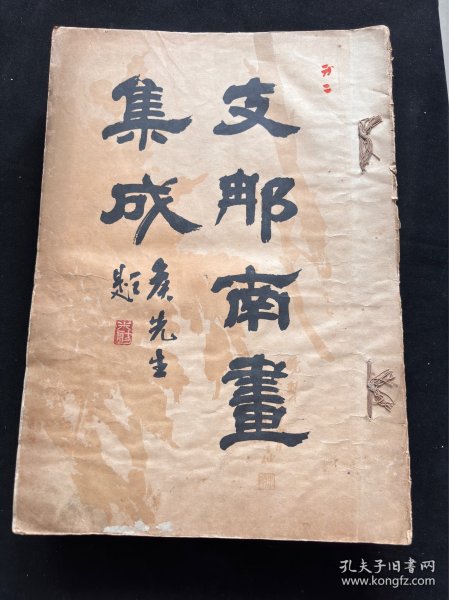 支那南畫
集成
矦先生
題
孔夫子旧书网
www.kongfz.com